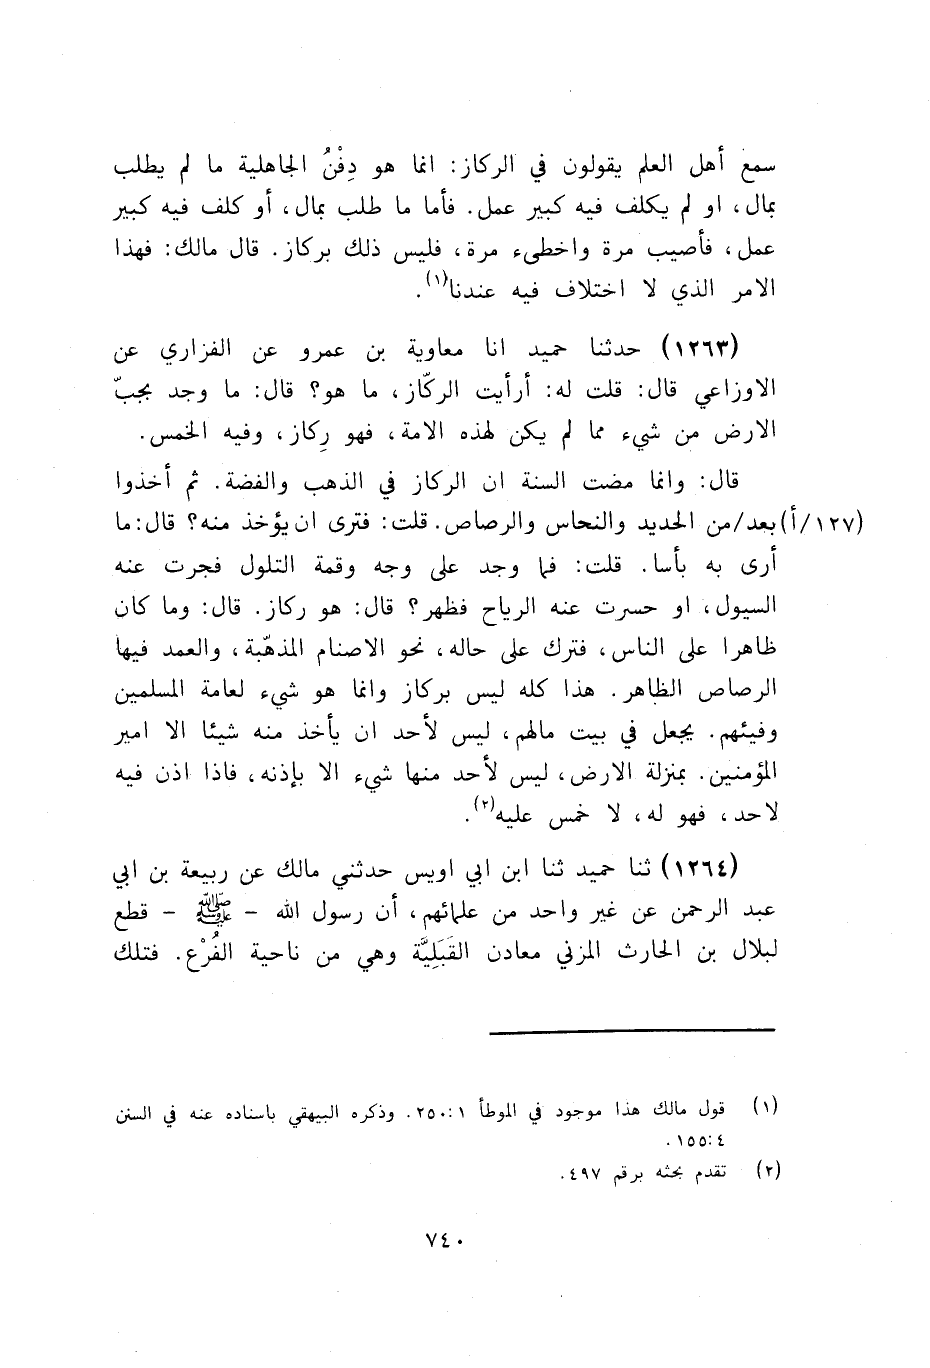 سمع أهل العلم يقولون في الركاز: انما هو دِفْنُ الجاهلية ما لم يطلب
بمال، او لم يكلف فيه كبير عمل. فأما ما طلب بمال، أو كلف فيه كبير
عمل، فأصيب مرة واخطىء مرة، فليس ذلك بركاز. قال مالك: فهذا
الامر الذي لا اختلاف فيه عندنا(١).
(١٢٦٣) حدثنا حميد انا معاوية بن عمرو عن الفزاري عن
الاوزاعي قال: قلت له: أرأيت الركّاز، ما هو؟ قال: ما وجد بجبّ
الارض من شيء مما لم يكن لهذه الامة، فهو رِكاز، وفيه الخمس.
قال: وانما مضت السنة ان الركاز في الذهب والفضة. ثم أخذوا
(١٢٧/أ) بعد/من الحديد والنحاس والرصاص. قلت: فترى ان يؤخذ منه؟ قال: ما
أرى به بأسا. قلت: فما وجد على وجه وقمة التلول فجرت عنه
السيول، او حسرت عنه الرياح فظهر؟ قال: هو ركاز. قال: وما كان
ظاهرا على الناس، فترك على حاله، نحو الاصنام المذهّبة، والعمد فيها
الرصاص الظاهر. هذا كله ليس بركاز وانما هو شيء لعامة المسلمين
وفيئهم. يجعل في بيت مالهم، ليس لأحد ان يأخذ منه شيئا الا امير
المؤمنين. بمنزلة الارض، ليس لأحد منها شيء الا بإذنه، فاذا اذن فيه
لاحد، فهو له، لا خمس عليه(٢).
(١٢٦٤) ثنا حميد ثنا ابن ابي اويس حدثني مالك عن ربيعة بن ابي
عبد الرحمن عن غير واحد من علمائهم، أن رسول الله - ﷺ - قطع
لبلال بن الحارث المزني معادن القَبَلِيَّة وهي من ناحية الفُرْع. فتلك
(١) قول مالك هذا موجود في الموطأ ١: ٢٥٠. وذكره البيهقي باسناده عنه في السنن
٤: ١٥٥.
(٢) تقدم بحثه برقم ٤٩٧.
٧٤٠